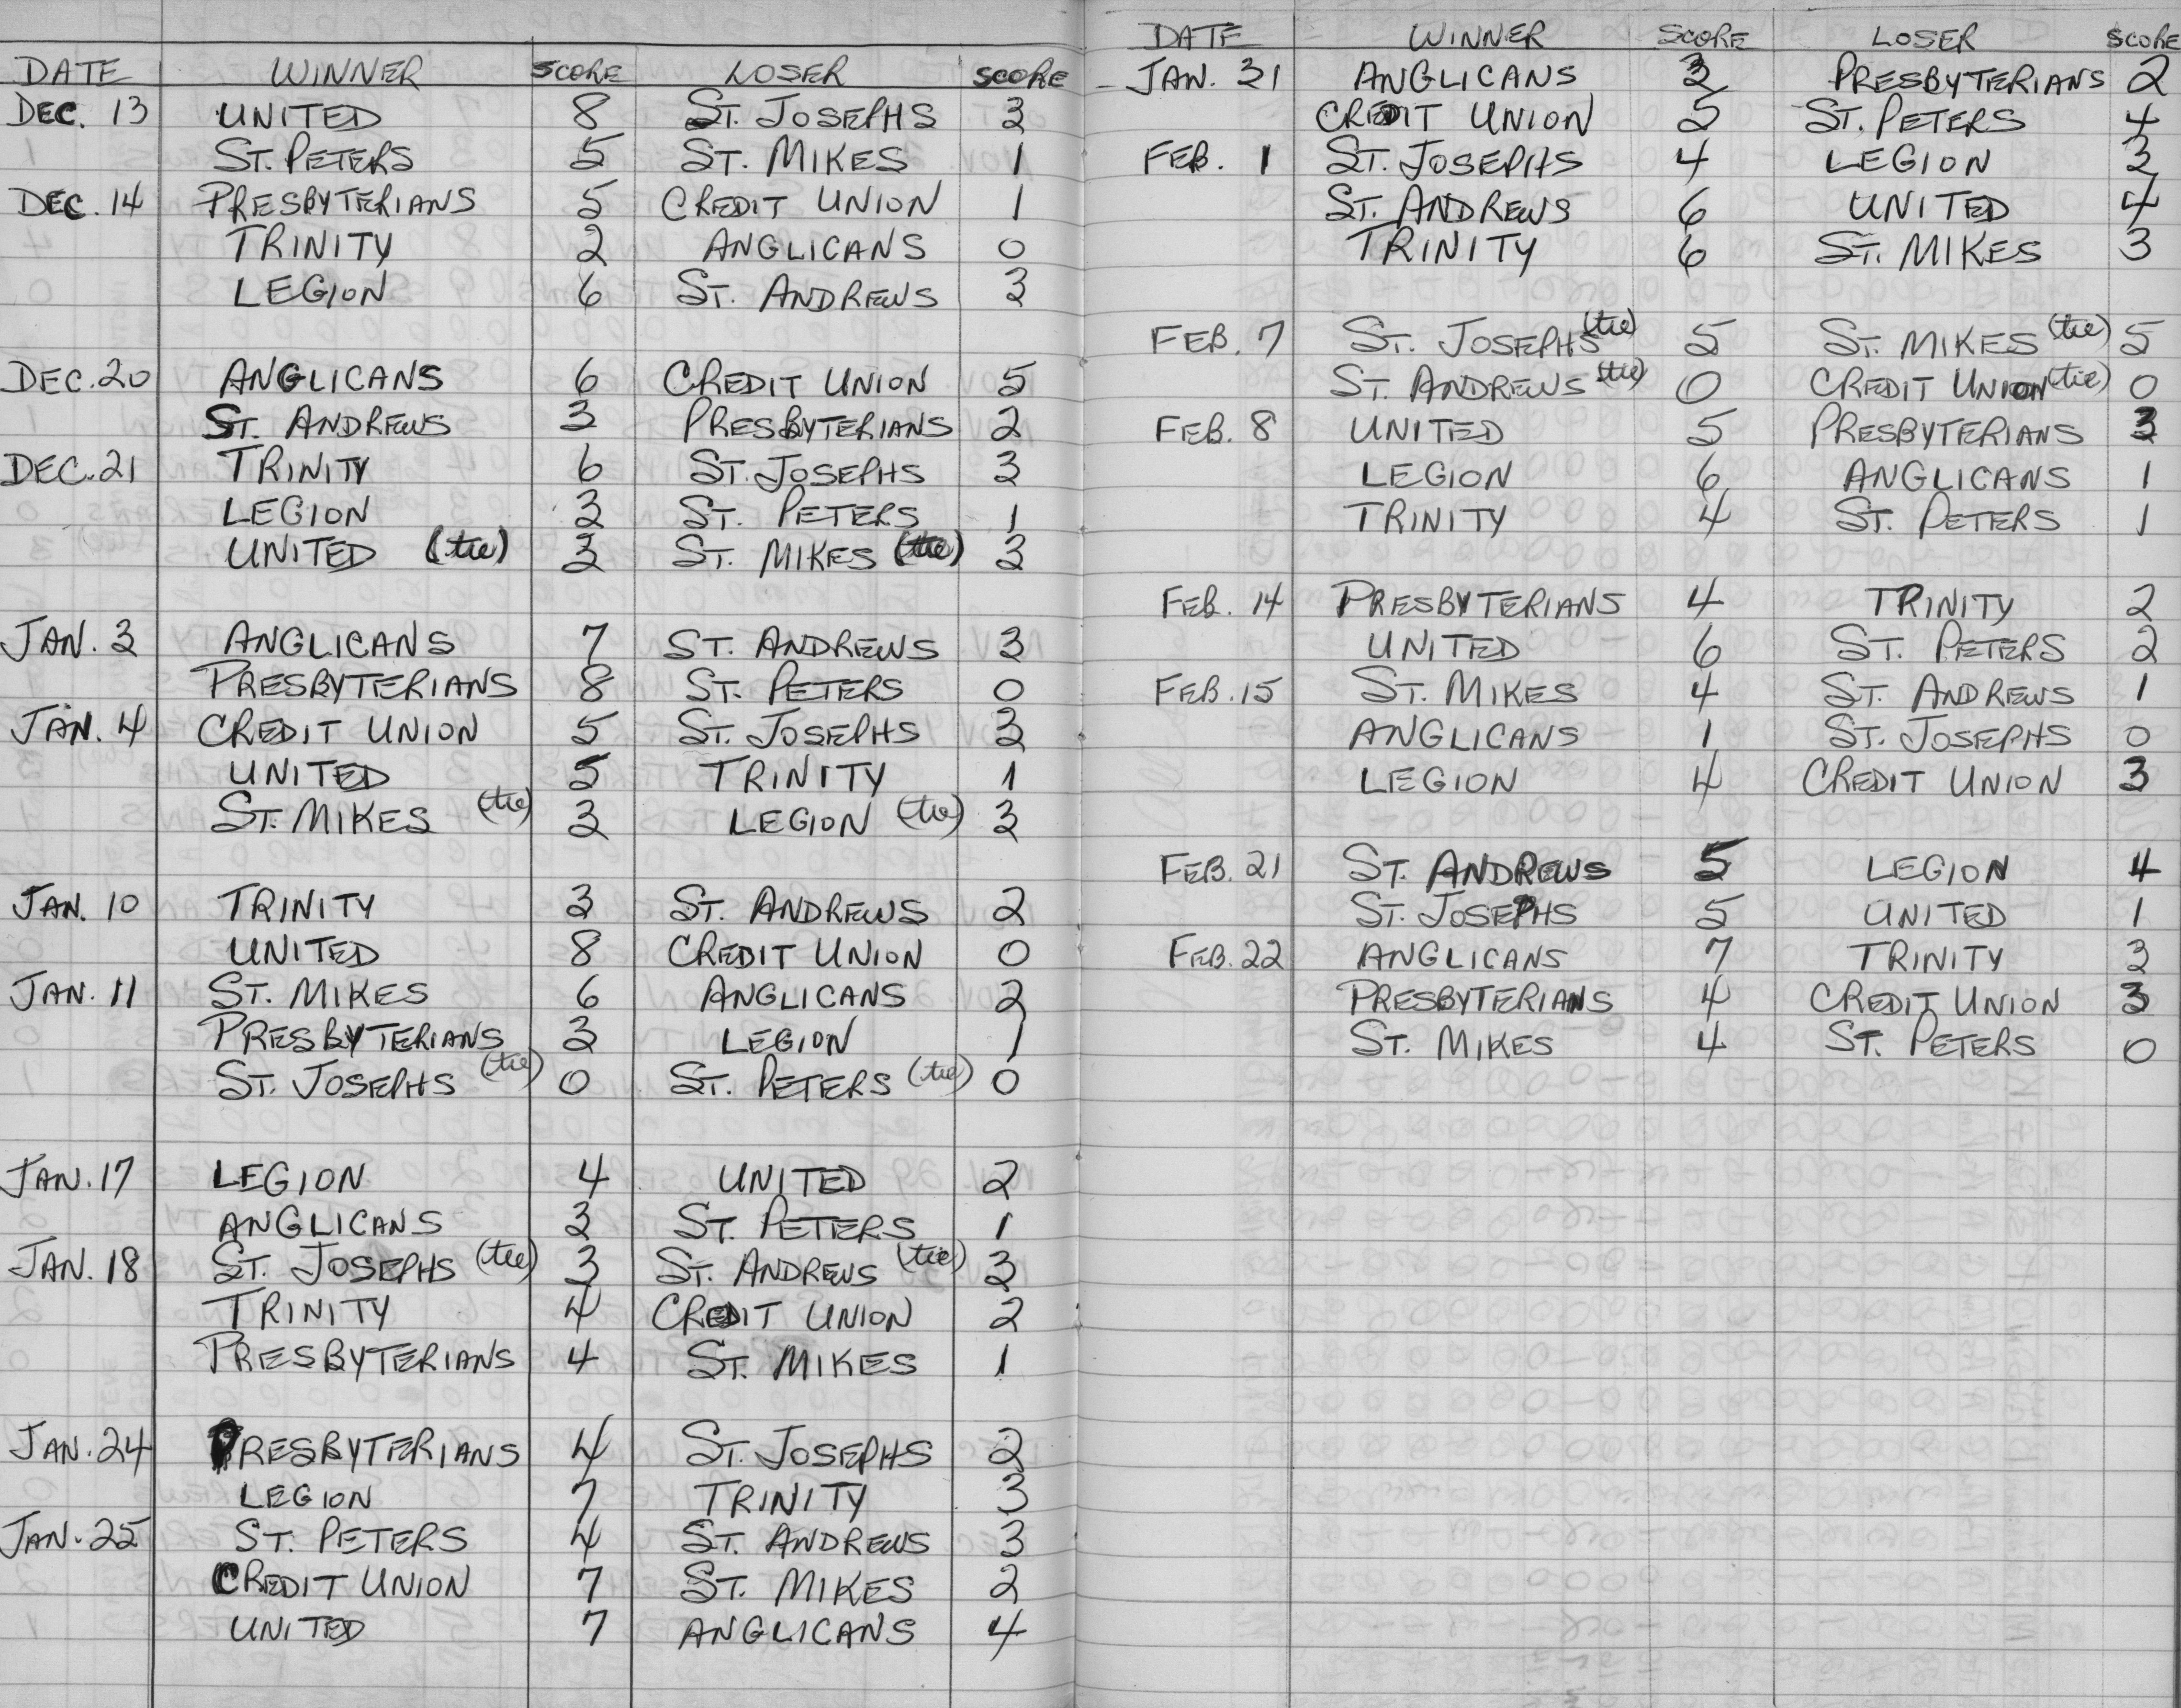 DATE WINNER SCORE LOSER SCORE
DEC. 13 UNITED 8 ST. JOSEPHS 3
ST. PETERS 5 ST. MIKES 1
DEC. 14 PRESBYTERIANS 5 CREDIT UNION 1
TRINITY 2 ANGLICANS 0
LEGION 6 ST. ANDREWS 3
DEC. 20 ANGLICANS 6 CREDIT UNION 5
ST. ANDREWS 3 PRESBYTERIANS 2
DEC. 21 TRINITY 6 ST. JOSEPHS 3
LEGION 3 ST. PETERS 1
UNITED (tie) 3 ST. MIKES (tie) 3
JAN. 3 ANGLICANS 7 ST. ANDREWS 3
PRESBYTERIANS 8 ST. PETERS 0
JAN. 4 CREDIT UNION 5 ST. JOSEPHS 3
UNITED 5 TRINITY 1
ST. MIKES (tie) 3 LEGION (tie) 3
JAN. 10 TRINITY 3 ST. ANDREWS 2
UNITED 8 CREDIT UNION 0
JAN. 11 ST. MIKES 6 ANGLICANS 2
PRESBYTERIANS 3 LEGION 1
ST. JOSEPHS (tie) 0 ST. PETERS (tie) 0
JAN. 17 LEGION 4 UNITED 2
ANGLICANS 3 ST. PETERS 1
JAN. 18 ST. JOSEPHS (tie) 3 ST. ANDREWS (tie) 3
TRINITY 4 CREDIT UNION 2
PRESBYTERIANS 4 ST. MIKES 1
JAN. 24 PRESBYTERIANS 4 ST. JOSEPHS 2
LEGION 7 TRINITY 3
JAN. 25 ST. PETERS 4 ST. ANDREWS 3
CREDIT UNION 7 ST. MIKES 2
UNITED 7 ANGLICANS 4
DATE WINNER SCORE LOSER SCORE
JAN. 31 ANGLICANS 3 PRESBYTERIANS 2
CREDIT UNION 5 ST. PETERS 4
FEB. 1 ST. JOSEPHS 4 LEGION 3
ST. ANDREWS 6 UNITED 4
TRINITY 6 ST. MIKES 3
FEB. 7 ST. JOSEPHS (tie) 5 ST. MIKES (tie) 5
ST. ANDREWS (tie) 0 CREDIT UNION (tie) 0
FEB. 8 UNITED 5 PRESBYTERIANS 3
LEGION 6 ANGLICANS 1
TRINITY 4 ST. PETERS 1
FEB. 14 PRESBYTERIANS 4 TRINITY 2
UNITED 6 ST. PETERS 2
FEB. 15 ST. MIKES 4 ST. ANDREWS 1
ANGLICANS 1 ST. JOSEPHS 0
LEGION 4 CREDIT UNION 3
FEB. 21 ST. ANDREWS 5 LEGION 4
ST. JOSEPHS 5 UNITED 1
FEB. 22 ANGLICANS 7 TRINITY 3
PRESBYTERIANS 4 CREDIT UNION 3
ST. MIKES 4 ST. PETERS 0